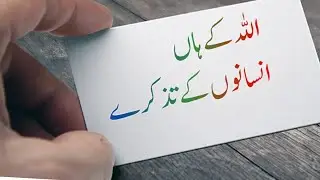 اللہ کے ہاں
انسانوں کے تذکرے